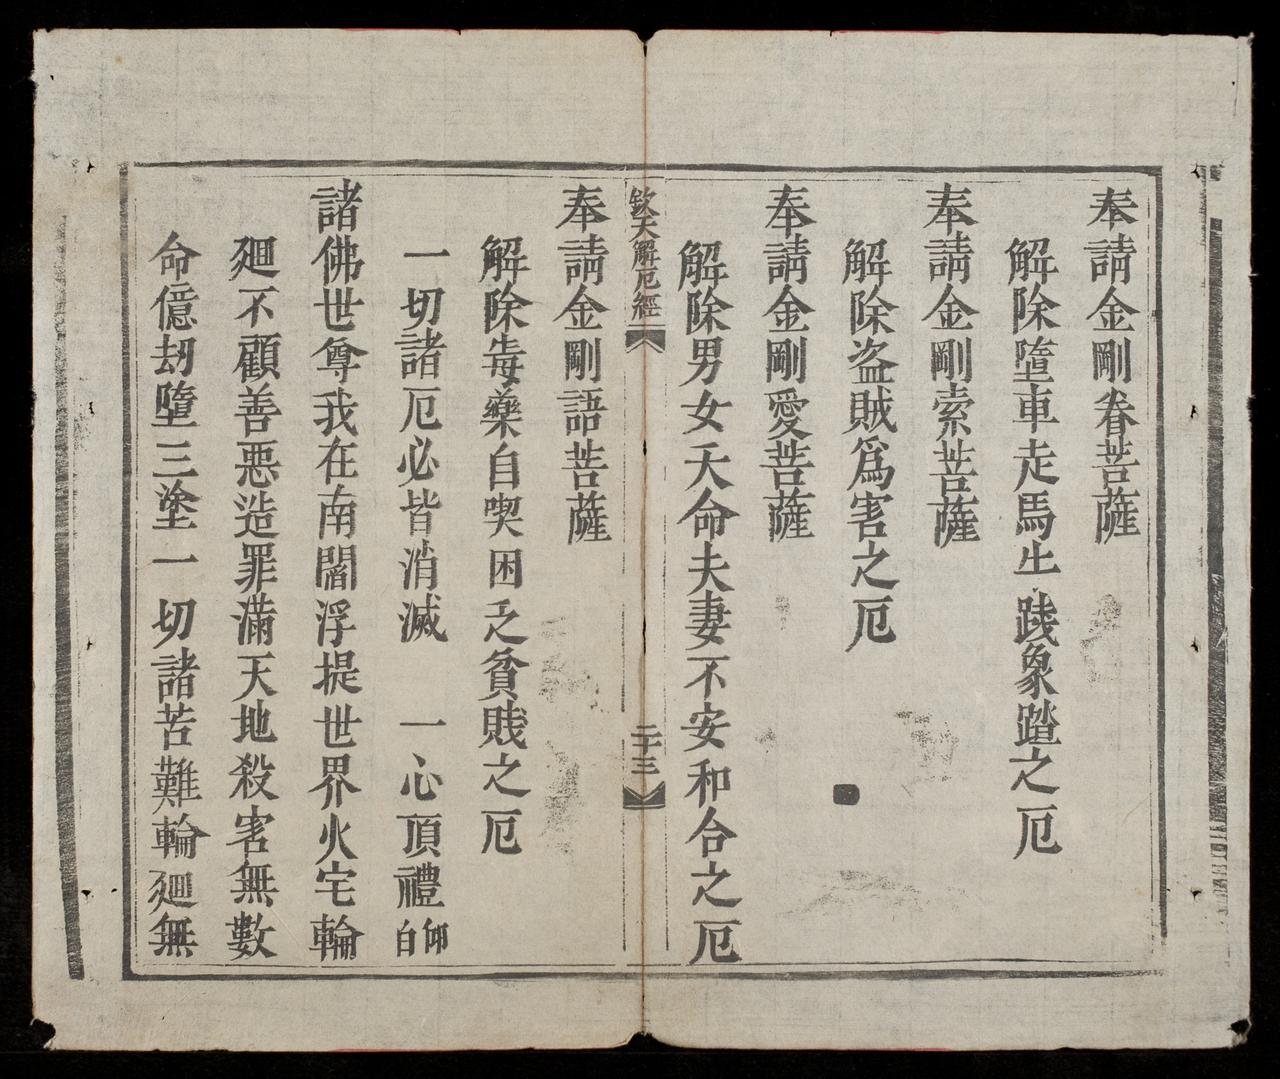 奉請金剛眷菩薩
解除墮車走馬牛踐象踏之厄
奉請金剛索菩薩
解除盗賊爲害之厄
奉請金剛愛菩薩
解除男女夭命夫妻不安和合之厄
欽天解厄經
二十三
奉請金剛語菩薩
解除毒藥自喫困乏貧賤之厄
一切諸厄必皆消滅 一心頂禮仰白
諸佛世尊我在南閻浮提世界火宅輪
廻不顧善惡造罪滿天地殺害無數
命億劫墮三塗一切諸苦難輪廻無